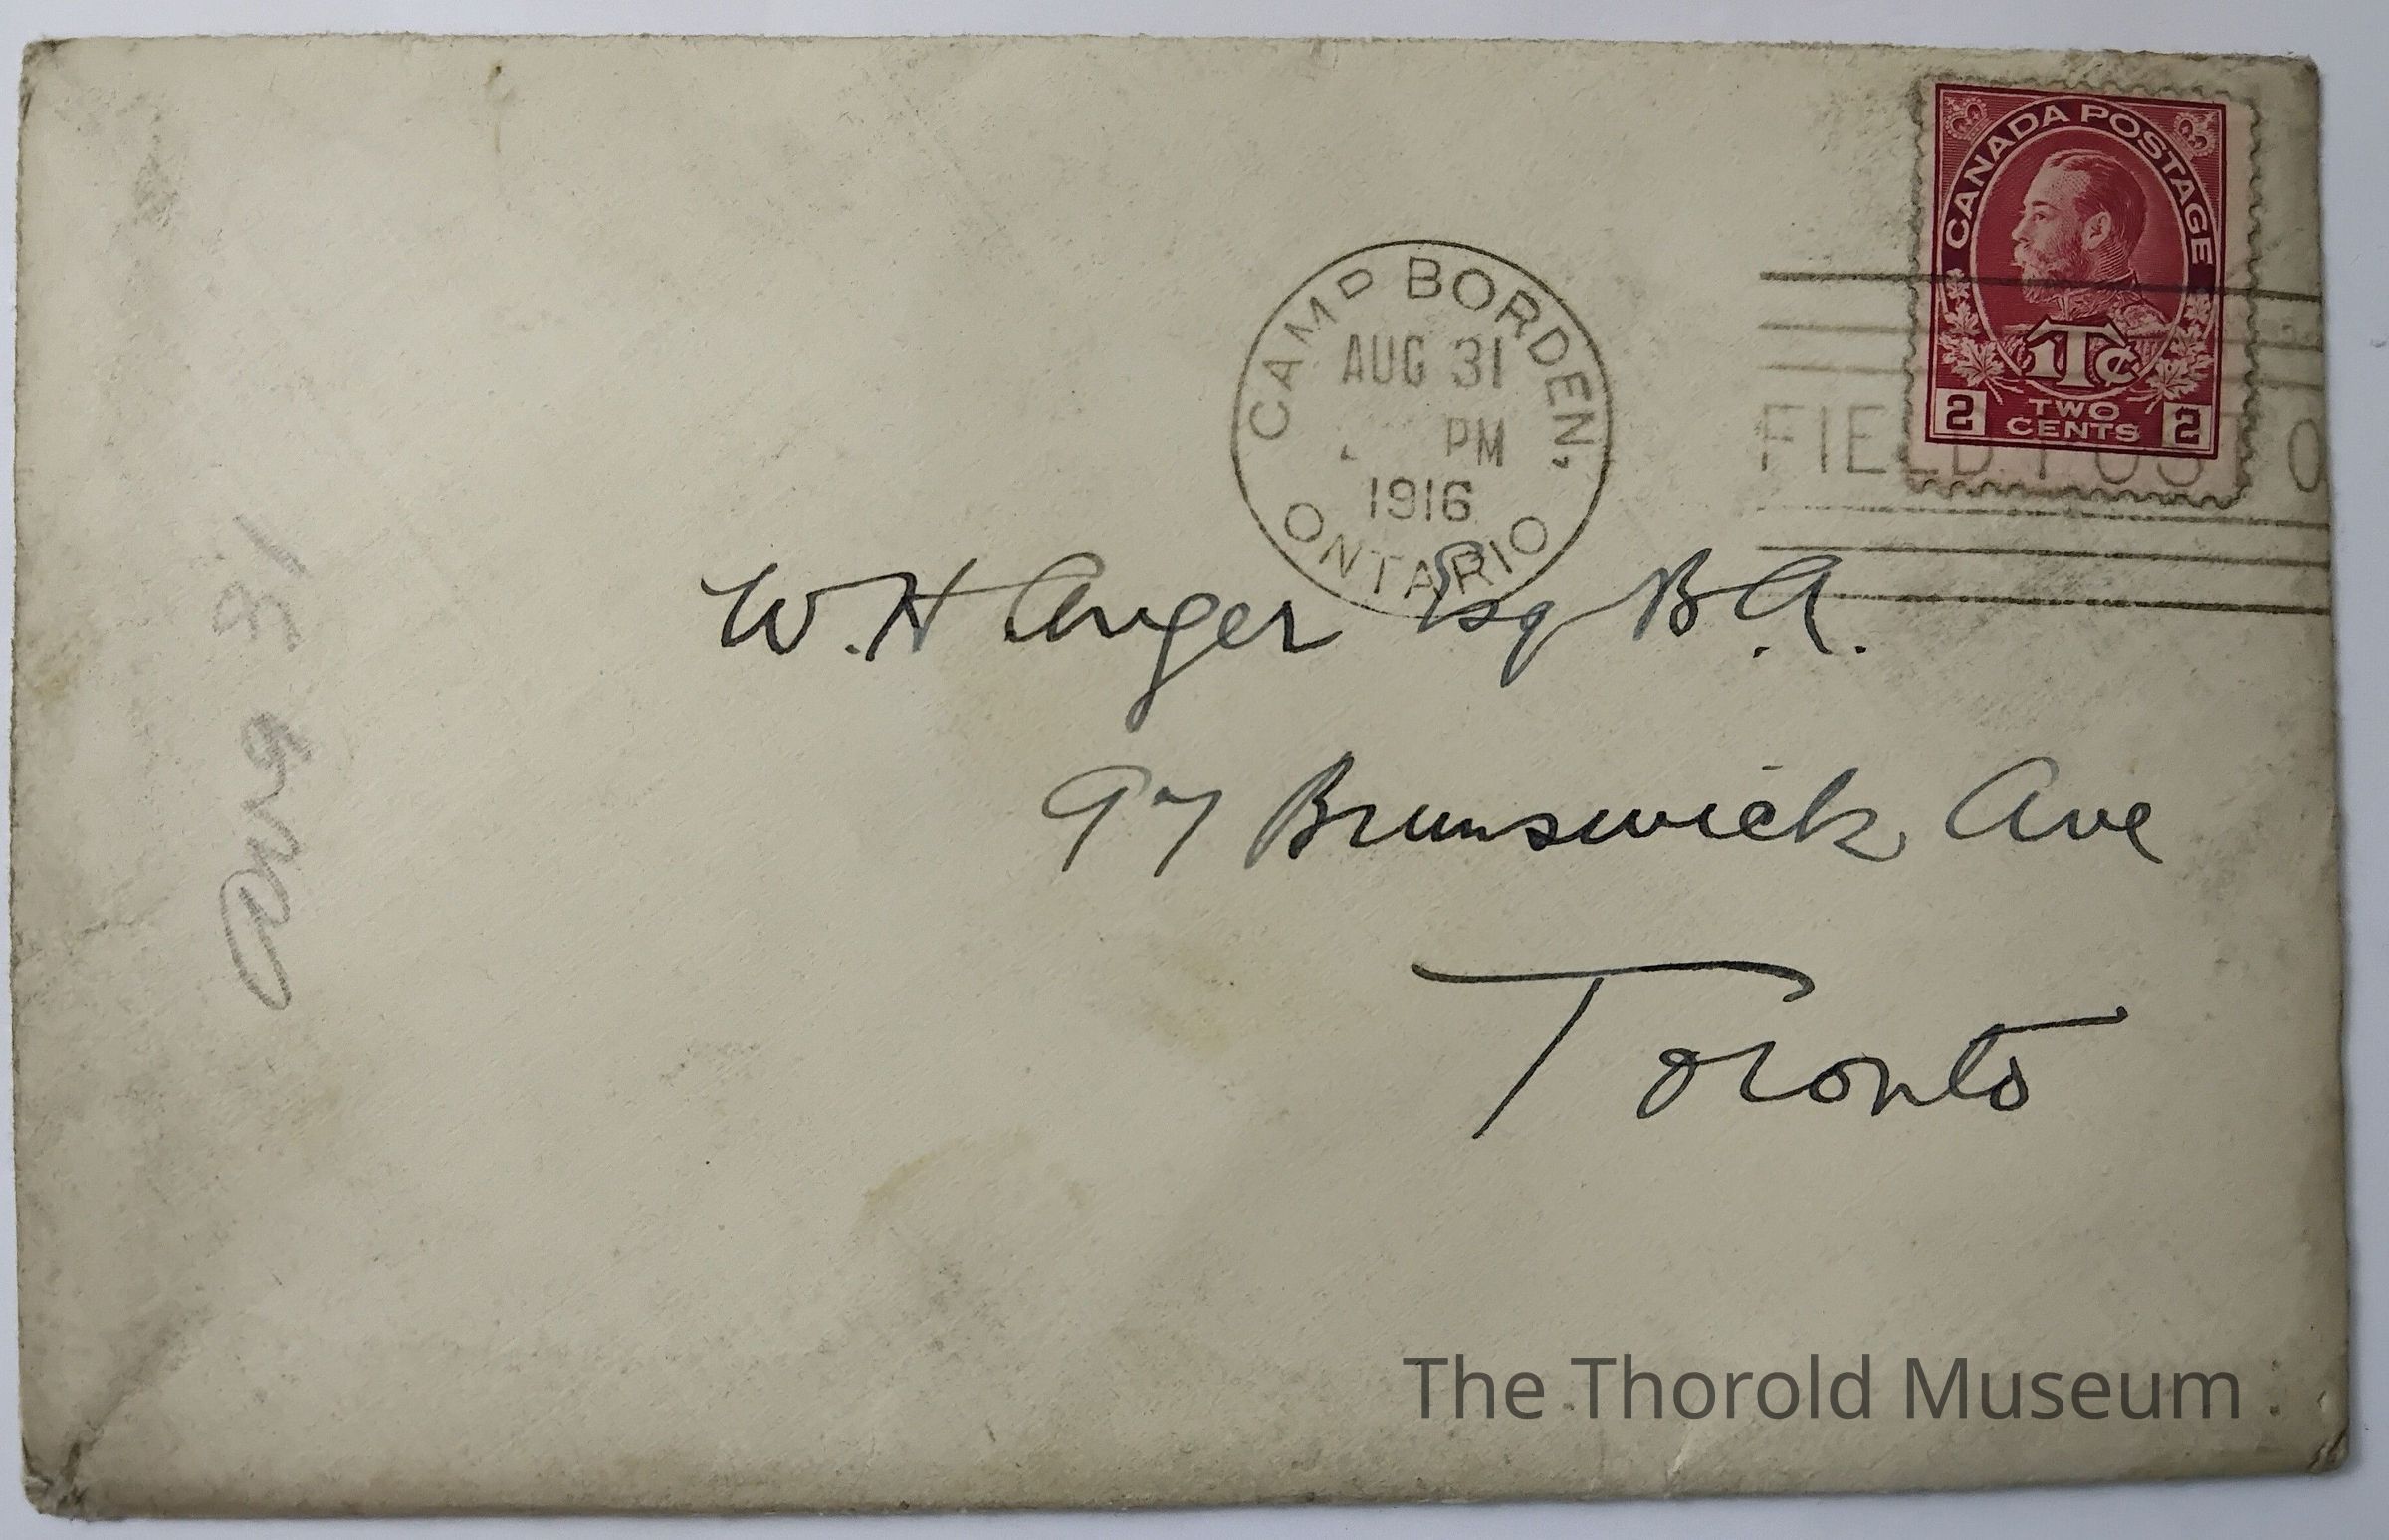 CANADA POSTAGE
1Tc
2 TWO CENTS 2
CAMP BORDEN,
AUG 31
PM
1916
ONTARIO
FIELD POST O
W. H Anger Esq B.A.
97 Brunswick Ave
Toronto
Aug 31
The Thorold Museum